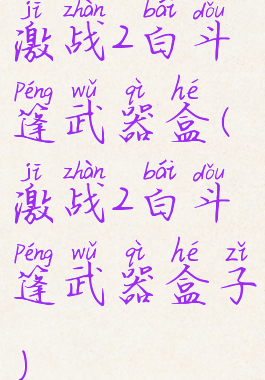 jī zhàn bái dǒu
激战2白斗
Péng wǔ qì hé
篷武器盒(
jī zhàn bái dǒu
激战2白斗
Péng wǔ qì hé zǐ
篷武器盒子
)